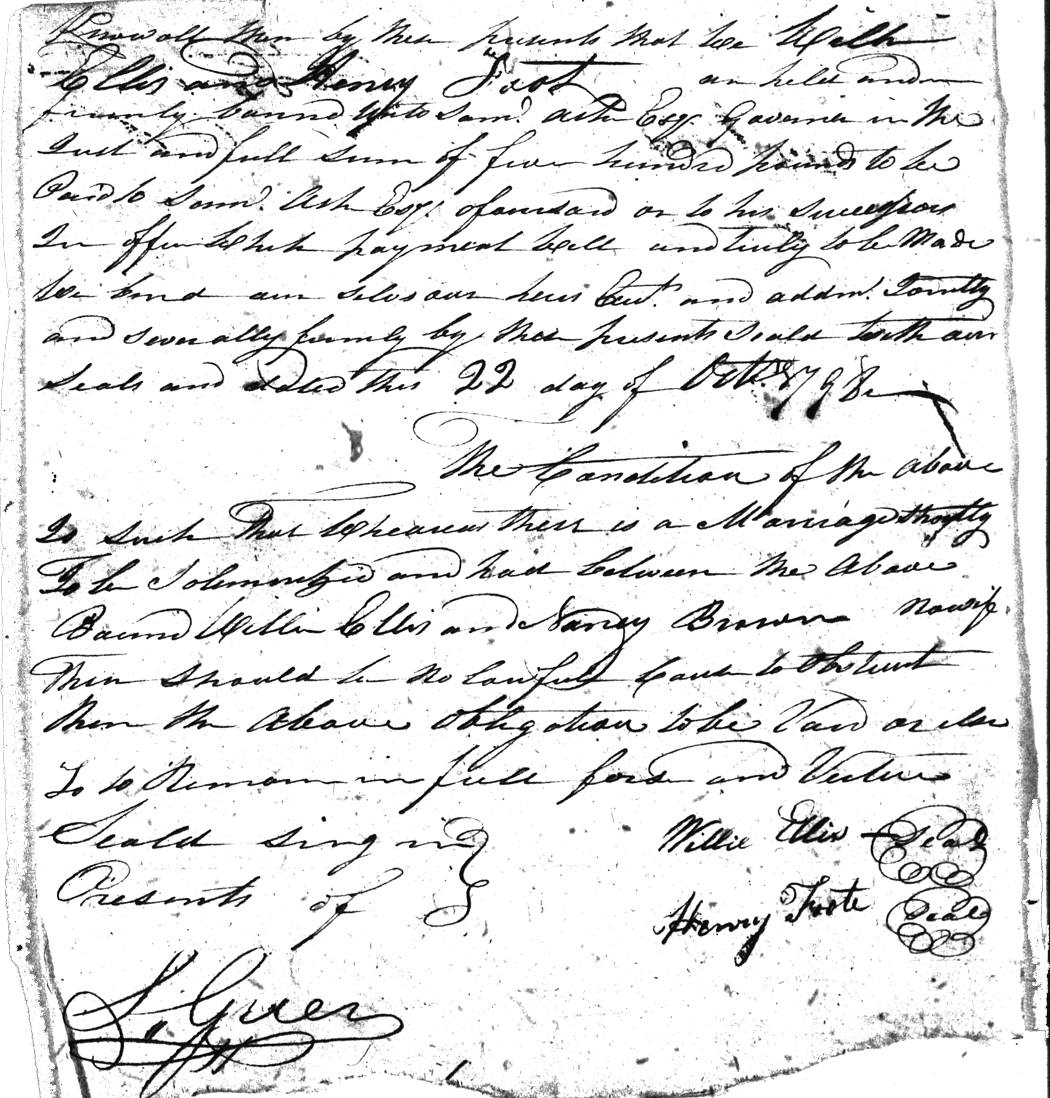 Know all Men by these presents that we Willie
Ellis and Henry Foot are held and
firmly bound unto Sam.l Ashe Esq.r Govenor in the
Just and full sum of five hundred pounds to be
Paid to Sam.l Ashe Esq.r aforesaid or to his Successors
In office Which payment Well and truly to be Made
We bind our selves our heirs Exet.s and addm.s Jointly
and severally firmly by these presents Seald with our
Seals and dated this 22 day of Octb.r 1798
The Condition of the above
Is Such That Whereas there is a Marriage Shortly
To be Solemnized and had between the Above
Bound Willie Ellis and Nancy Brown Now if
Their Should be No Lawfull Cause to Obstruct
then the Above Obligation to be Void or else
To to Remain in full force and Virtue
Seald Sing in
Presents of
Willie Ellis Seal
Henry Foote Seal
S. Green